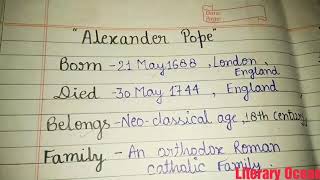 "Alexander Pope"
Born - 21 May 1688, London,
England
Died - 30 May 1744, England
Belongs - Neo-classical age, 18th century
Family - An orthodox Roman
catholic Family.
Literary Ocean